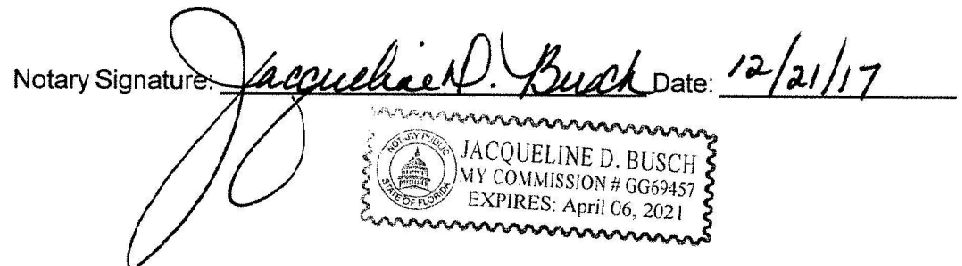 Notary Signature: Jacqueline D. Busch Date: 12/21/17
NOTARY PUBLIC
STATE OF FLORIDA
JACQUELINE D. BUSCH
MY COMMISSION # GG69457
EXPIRES: April 06, 2021